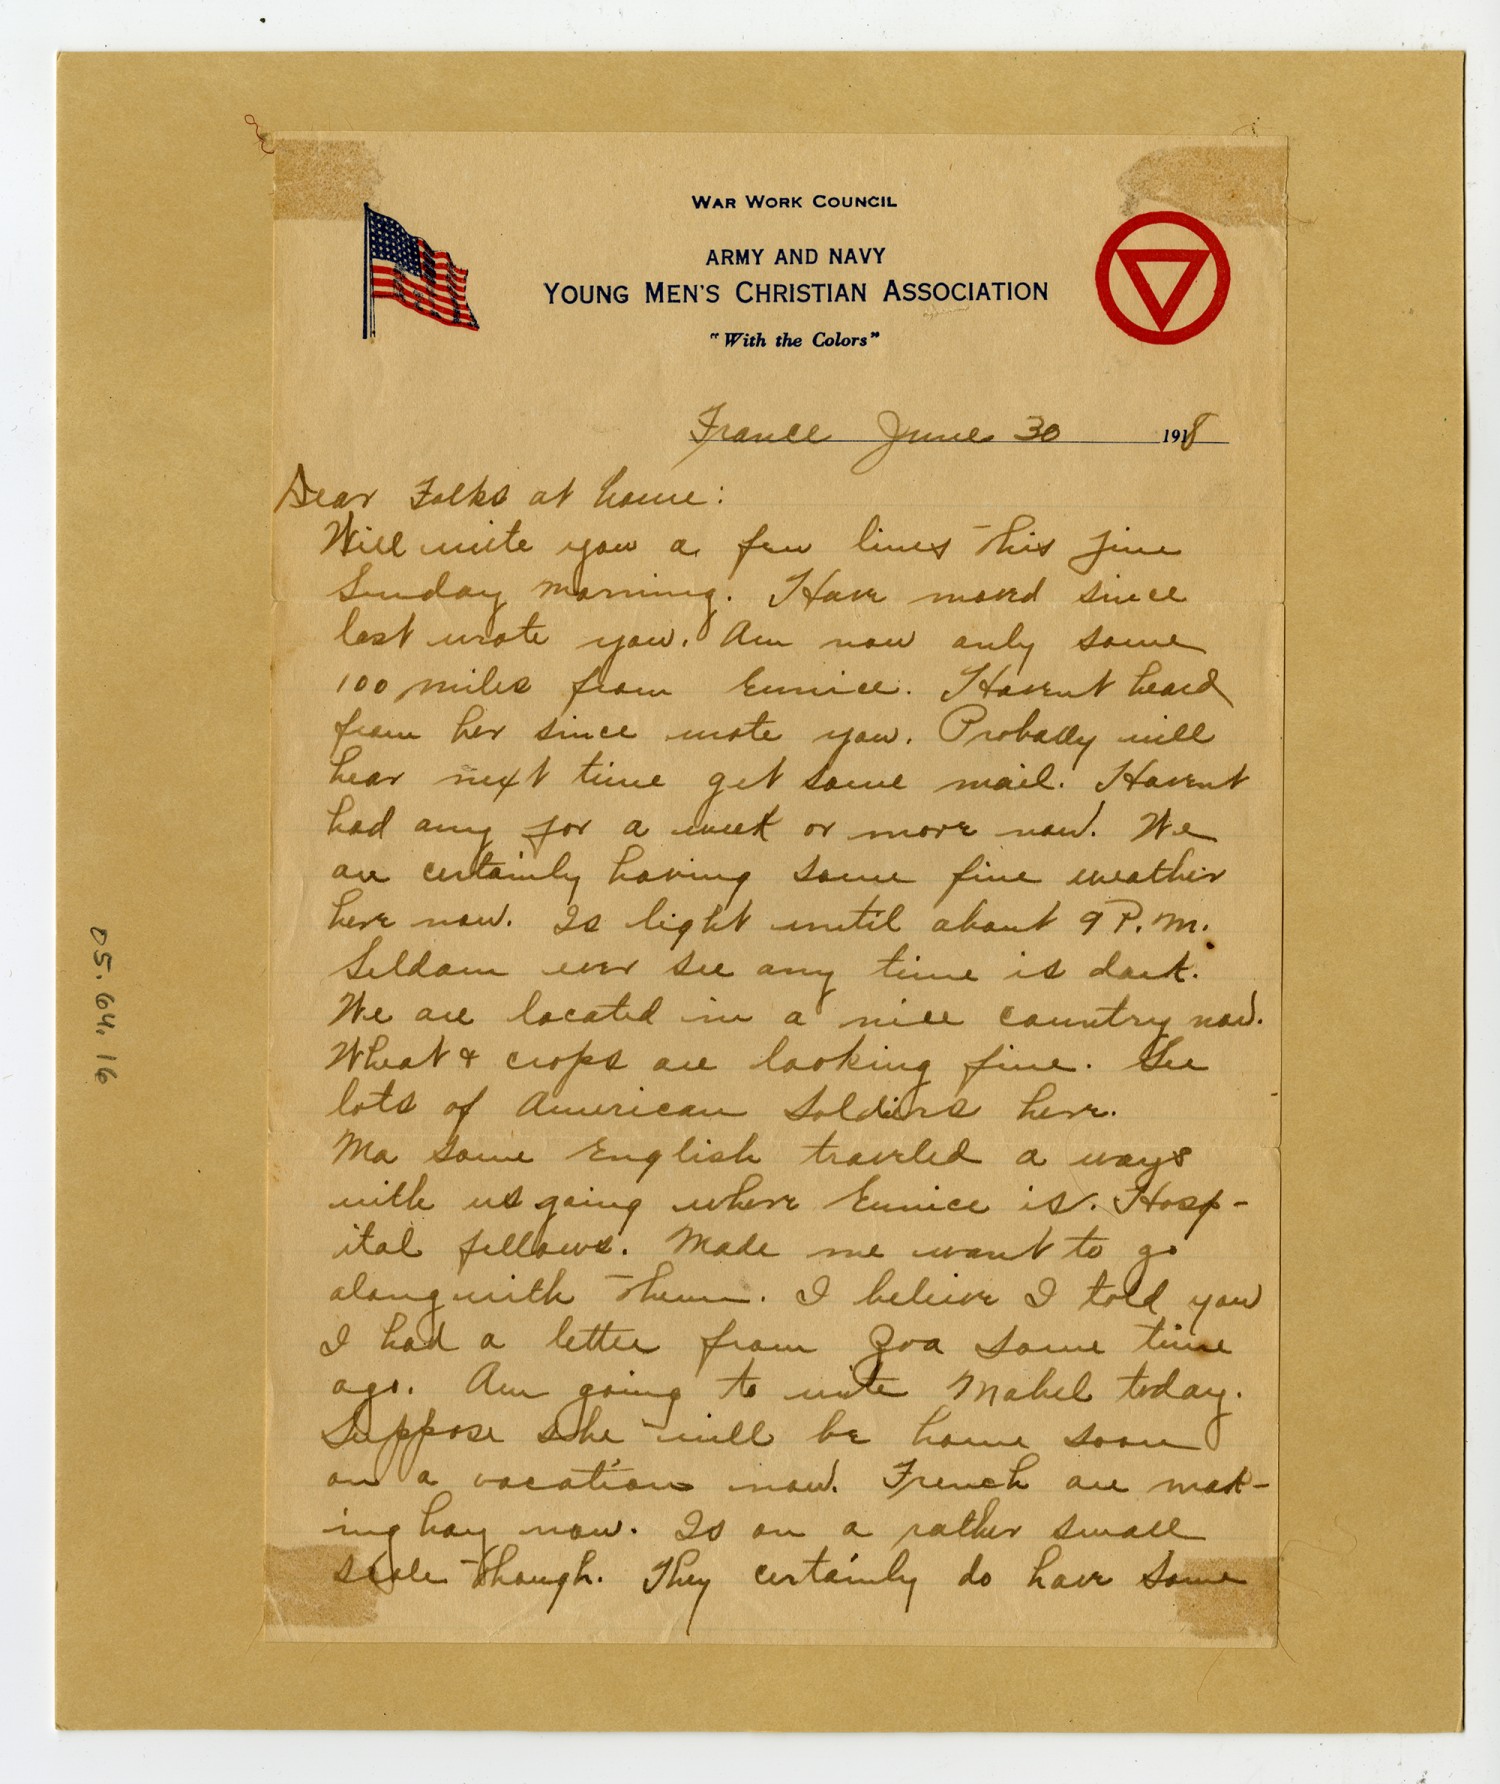 WAR WORK COUNCIL
ARMY AND NAVY
YOUNG MEN'S CHRISTIAN ASSOCIATION
"With the Colors"
France June 30 1918
Dear Folks at home:
Will write you a few lines this fine
Sunday morning. Have moved since
last wrote you. Am now only some
100 miles from Eunice. Havent heard
from her since wrote you. Probably will
hear next time get some mail. Havent
had any for a week or more now. We
are certainly having some fine weather
here now. Is light until about 9 P.M.
Seldom ever see any time is dark.
We are located in a nice country now.
Wheat & crops are looking fine. See
lots of American soldiers here.
Ma some English traveled a ways
with us going where Eunice is. Hosp-
ital fellows. Made me want to go
along with them. I believe I told you
I had a letter from Zoa some time
ago. Am going to write Mabel today.
Suppose she will be home soon
on a vacation now. French are mak-
ing hay now. Is on a rather small
scale though. They certainly do have some
05.64.16